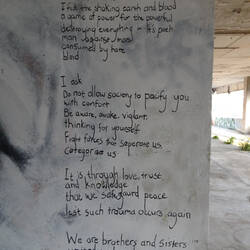 I felt the shaking earth and blood
a game of power for the powerful
destroying everything - its path
man against man
consumed by hate
blind
I ask
Do not allow society to pacify you
with comfort
Be aware, awake, vigilant,
thinking for yourself
Fight forces that seperate us
Categorize us
It is through love, trust
and knowledge
that we safeguard peace
lest such trauma occurs again
We are brothers and sisters
united